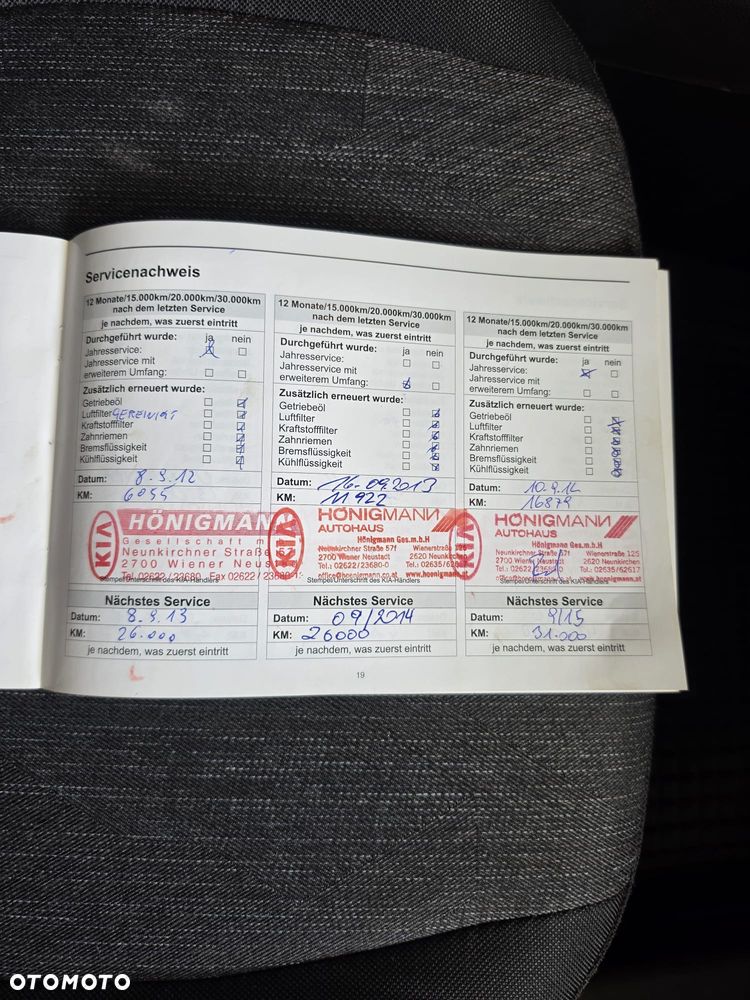 Servicenachweis
12 Monate/15.000km/20.000km/30.000km
nach dem letzten Service
je nachdem, was zuerst eintritt
Durchgeführt wurde: ja nein
Jahresservice:
Jahresservice mit
erweiterem Umfang:
Zusätzlich erneuert wurde:
Getriebeöl
Luftfilter GEREINIGT
Kraftstofffilter
Zahnriemen
Bremsflüssigkeit
Kühlflüssigkeit
Datum: 8.9.12
KM: 6055
KIA HÖNIGMANN
Gesellschaft m
Neunkirchner Straße
2700 Wiener Neus
Tel. 02622 / 23680, Fax 02622 / 23680-1
Stempel/Unterschrift des KIA-Händlers
Nächstes Service
Datum: 8.9.13
KM: 26.000
je nachdem, was zuerst eintritt
12 Monate/15.000km/20.000km/30.000km
nach dem letzten Service
je nachdem, was zuerst eintritt
Durchgeführt wurde: ja nein
Jahresservice:
Jahresservice mit
erweiterem Umfang:
Zusätzlich erneuert wurde:
Getriebeöl
Luftfilter
Kraftstofffilter
Zahnriemen
Bremsflüssigkeit
Kühlflüssigkeit
Datum: 16.09.2013
KM: 11922
KIA HÖNIGMANN
AUTOHAUS
Hönigmann Ges.m.b.H
Neunkirchner Straße 57f Wienerstraße 125
2700 Wiener Neustadt 2620 Neunkirchen
Tel.: 02622/23680-0 Tel.: 02635/62
office@hoenigmann.co.at www.hoenigmann
Stempel/Unterschrift des KIA-Händlers
Nächstes Service
Datum: 09/2014
KM: 26000
je nachdem, was zuerst eintritt
12 Monate/15.000km/20.000km/30.000km
nach dem letzten Service
je nachdem, was zuerst eintritt
Durchgeführt wurde: ja nein
Jahresservice:
Jahresservice mit
erweiterem Umfang:
Zusätzlich erneuert wurde:
Getriebeöl
Luftfilter
Kraftstofffilter
Zahnriemen
Bremsflüssigkeit
Kühlflüssigkeit
Datum: 10.9.14
KM: 16879
KIA HÖNIGMANN
AUTOHAUS
Hönigmann Ges.m.b.H
Neunkirchner Straße 57f Wienerstraße 125
2700 Wiener Neustadt 2620 Neunkirchen
Tel.: 02622/23680-0 Tel.: 02635/62617
office@hoenigmann.co.at www.hoenigmann.at
Stempel/Unterschrift des KIA-Händlers
Nächstes Service
Datum: 9/15
KM: 31.000
je nachdem, was zuerst eintritt
19
OTOMOTO